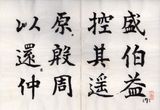 盛伯益
控其遥
原殷周
以還仲